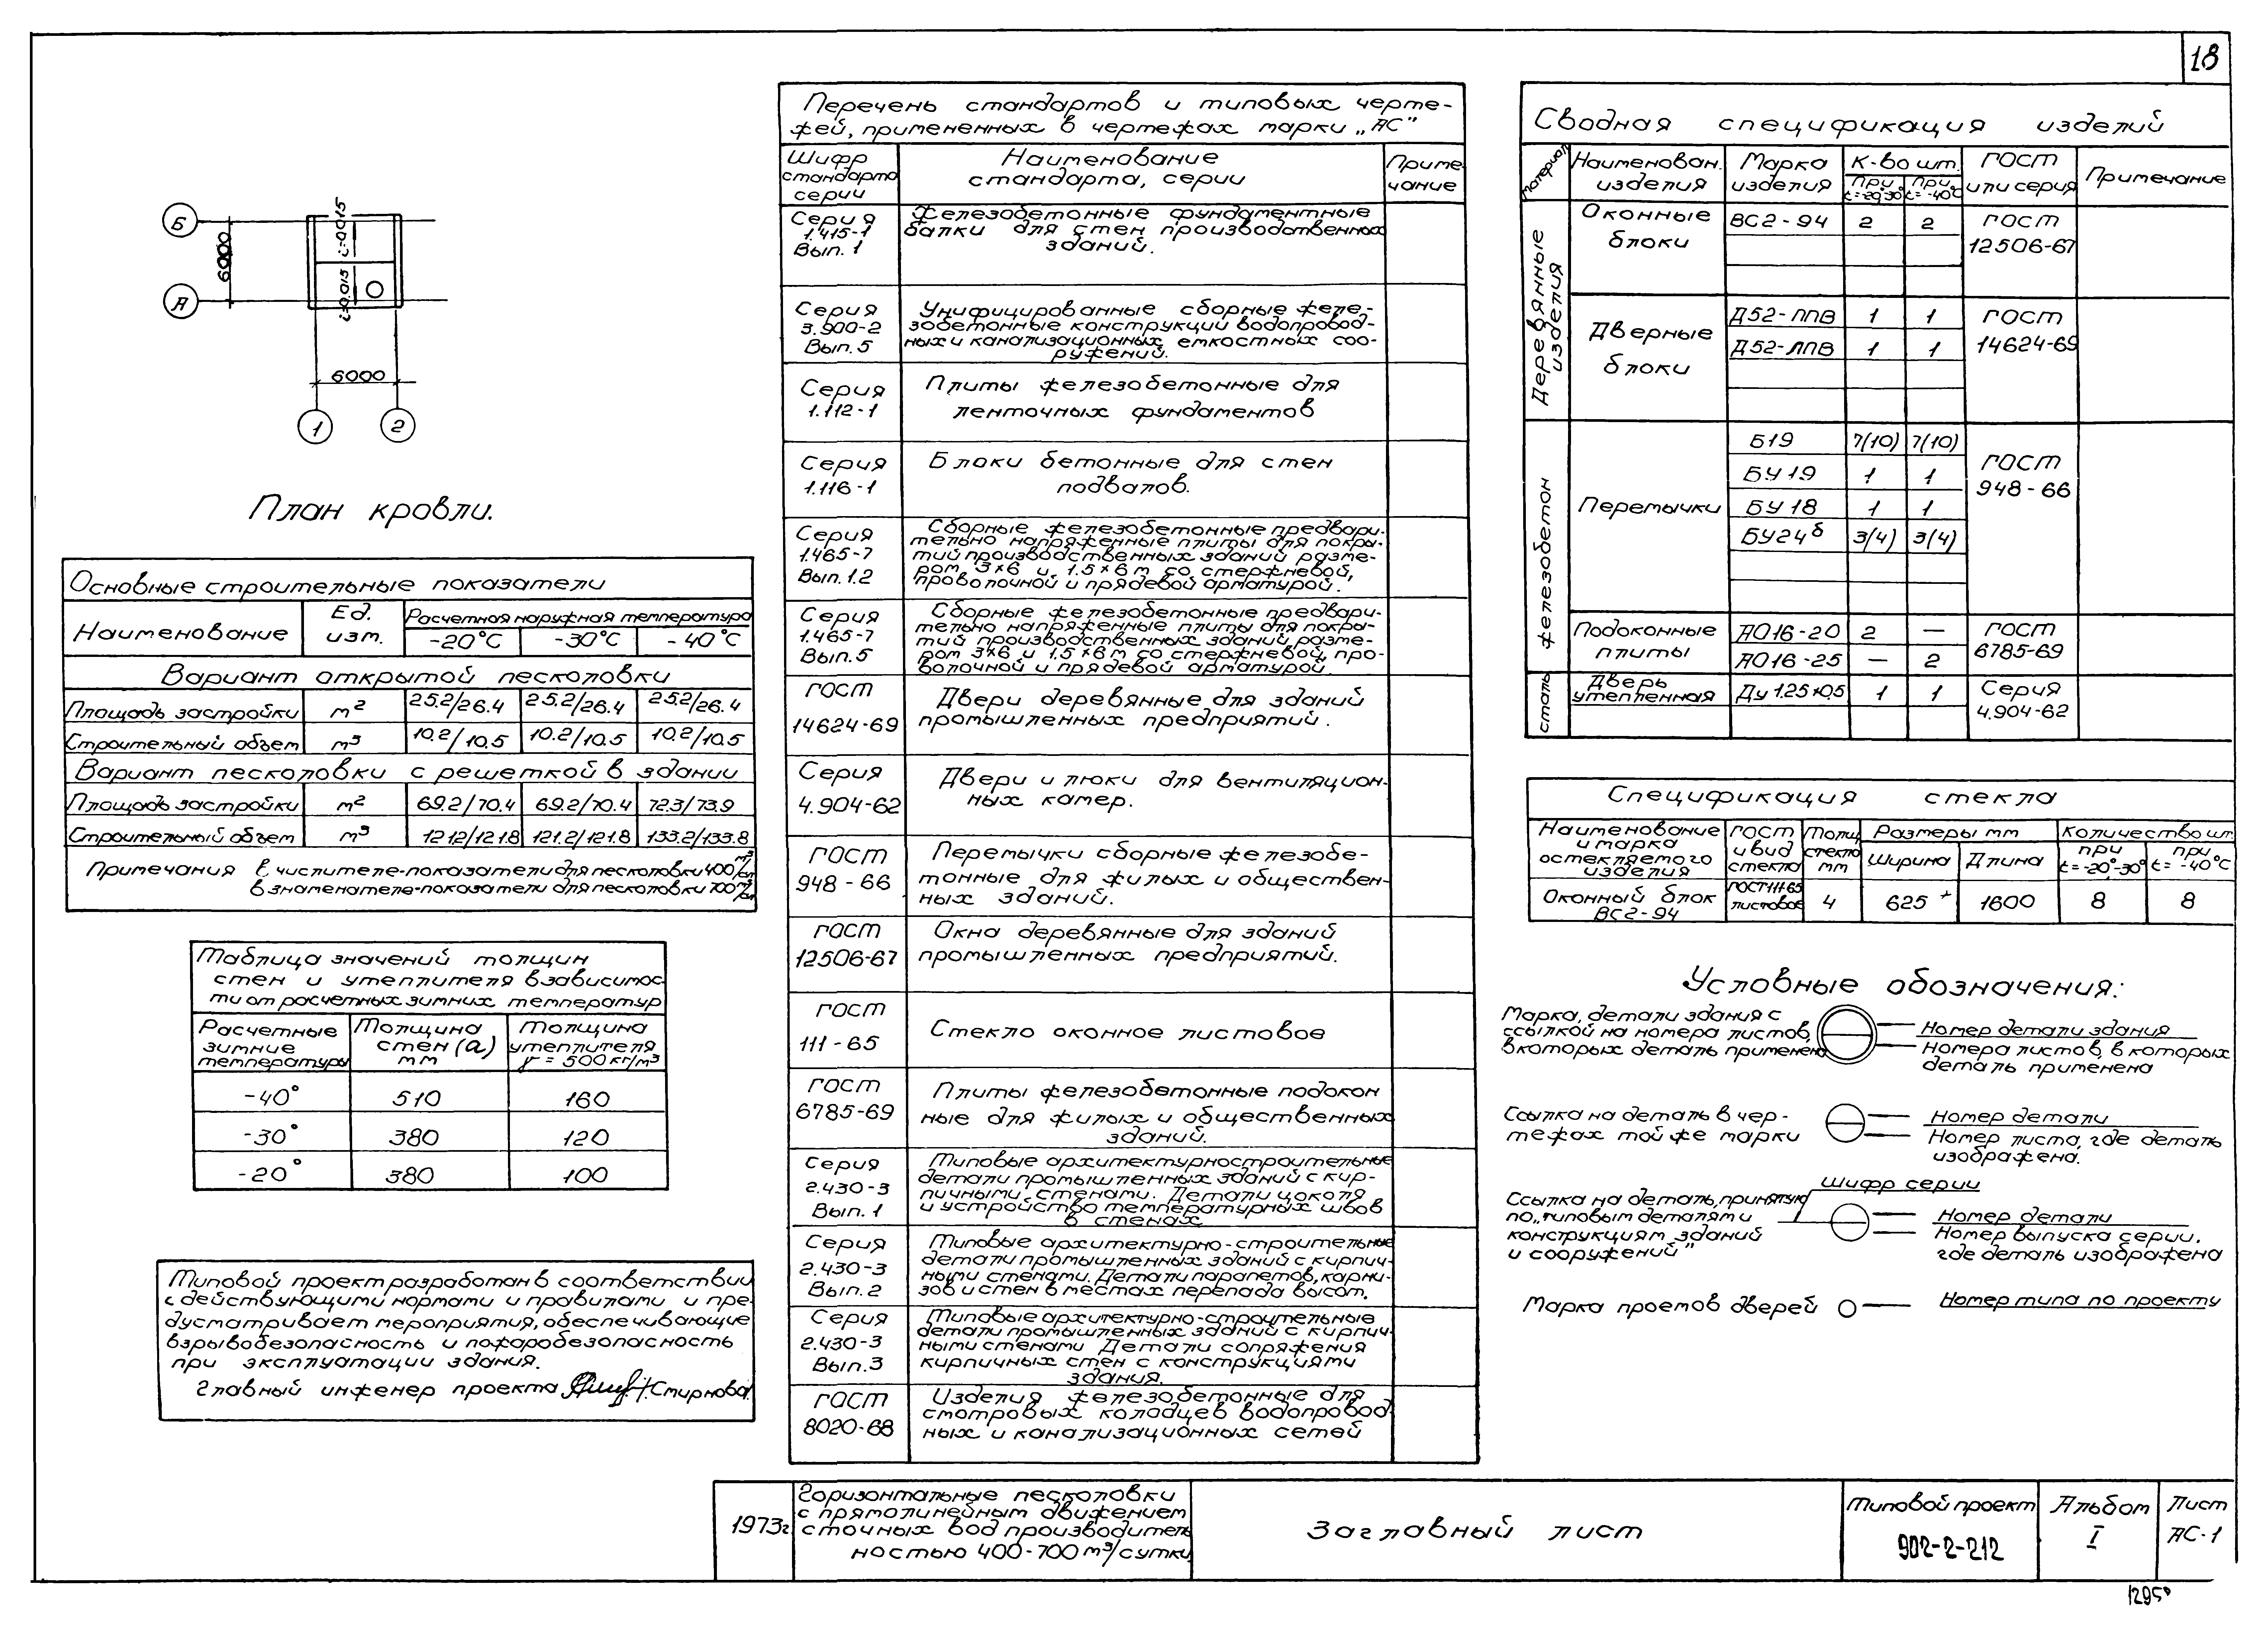 18
Б
А
6000
i=0.015
i=0.015
6000
1
2
План кровли.
Основные строительные показатели
Наименование
Ед. изм.
Расчетная наружная температура
-20°С
-30°С
-40°С
Вариант открытой песколовки
Площадь застройки м² 25.2/26.4 25.2/26.4 25.2/26.4
Строительный объем м³ 10.2/10.5 10.2/10.5 10.2/10.5
Вариант песколовки с решеткой в здании
Площадь застройки м² 69.2/70.4 69.2/70.4 72.3/73.9
Строительный объем м³ 121.2/121.8 121.2/121.8 133.2/133.8
Примечания В числителе-показатели для песколовки 400 м³/сут
в знаменателе-показатели для песколовки 700 м³/сут
Таблица значений толщин
стен и утеплителя в зависимос-
ти от расчетных зимних температур
Расчетные
зимние
температуры
Толщина
стен (а)
мм
Толщина
утеплителя
γ = 500 кг/м³
-40° 510 160
-30° 380 120
-20° 380 100
Типовой проект разработан в соответствии
с действующими нормами и правилами и пре-
дусматривает мероприятия, обеспечивающие
взрывобезопасность и пожаробезопасность
при эксплуатации здания.
Главный инженер проекта Смирнова
Перечень стандартов и типовых черте-
жей, примененных в чертежах марки „АС"
Шифр
стандарта
серии
Наименование
стандарта, серии
Приме-
чание
Серия
1.415-1
Вып. 1
Железобетонные фундаментные
балки для стен производственных
зданий.
Серия
3.900-2
Вып. 5
Унифицированные сборные желе-
зобетонные конструкции водопровод-
ных и канализационных емкостных соо-
ружений.
Серия
1.112-1
Плиты железобетонные для
ленточных фундаментов
Серия
1.116-1
Блоки бетонные для стен
подвалов.
Серия
1.465-7
Вып. 1.2
Сборные железобетонные предвари-
тельно напряженные плиты для покры-
тий производственных зданий разме-
ром 3×6 и 1.5×6 м со стержневой,
проволочной и прядевой арматурой.
Серия
1.465-7
Вып. 5
Сборные железобетонные предвари-
тельно напряженные плиты для покры-
тий производственных зданий разме-
ром 3×6 и 1.5×6 м со стержневой, про-
волочной и прядевой арматурой
ГОСТ
14624-69
Двери деревянные для зданий
промышленных предприятий.
Серия
4.904-62
Двери и люки для вентиляцион-
ных камер.
ГОСТ
948-66
Перемычки сборные железобе-
тонные для жилых и обществен-
ных зданий.
ГОСТ
12506-67
Окна деревянные для зданий
промышленных предприятий.
ГОСТ
111-65
Стекло оконное листовое
ГОСТ
6785-69
Плиты железобетонные подокон
ные для жилых и общественных
зданий.
Серия
2.430-3
Вып. 1
Типовые архитектурностроительные
детали промышленных зданий с кир-
пичными стенами. Детали цоколя
и устройство температурных швов
в стенах
Серия
2.430-3
Вып. 2
Типовые архитектурно-строительные
детали промышленных зданий с кирпич-
ными стенами. Детали парапетов, карни-
зов и стен в местах перепада высот.
Серия
2.430-3
Вып. 3
Типовые архитектурно-строительные
детали промышленных зданий с кирпич-
ными стенами Детали сопряжения
кирпичных стен с конструкциями
здания.
ГОСТ
8020-68
Изделия железобетонные для
смотровых колодцев водопровод-
ных и канализационных сетей
Сводная спецификация изделий
Материал
Наименован.
изделия
Марка
изделия
К-во шт.
при t=-20,-30°
при t=-40°С
ГОСТ
или серия
Примечание
Деревянные
изделия
Оконные
блоки
ВС2-94 2 2
ГОСТ
12506-67
Дверные
блоки
Д52-ППВ 1 1
Д52-ЛПВ 1 1
ГОСТ
14624-69
Железобетон
Перемычки
Б19 7(10) 7(10)
БУ19 1 1
БУ18 1 1
БУ24б 3(4) 3(4)
ГОСТ
948-66
Подоконные
плиты
ПО16-20 2 —
ПО16-25 — 2
ГОСТ
6785-69
сталь
Дверь
утепленная
Ду 1.25×0,5 1 1
Серия
4.904-62
Спецификация стекла
Наименование
и марка
остекляемого
изделия
ГОСТ
и вид
стекла
Толщ.
стекла
мм
Размеры мм
Ширина
Длина
Количество шт.
при
t=-20°,-30°
при
t=-40°С
Оконный блок
ВС2-94
ГОСТ 111-65
листовое
4
625
1600
8
8
Условные обозначения:
Марка, детали здания с
ссылкой на номера листов,
в которых деталь применена
Номер детали здания
Номера листов, в которых
деталь применена
Ссылка на деталь в чер-
тежах той же марки
Номер детали
Номер листа, где деталь
изображена.
Ссылка на деталь, принятую
по „типовым деталям и
конструкциям зданий
и сооружений"
Шифр серии
Номер детали
Номер выпуска серии,
где деталь изображена
Марка проемов дверей
Номер типа по проекту
1973г.
Горизонтальные песколовки
с прямолинейным движением
сточных вод производитель
ностью 400-700 м³/сутки
Заглавный лист
Типовой проект
902-2-212
Альбом
I
Лист
АС-1